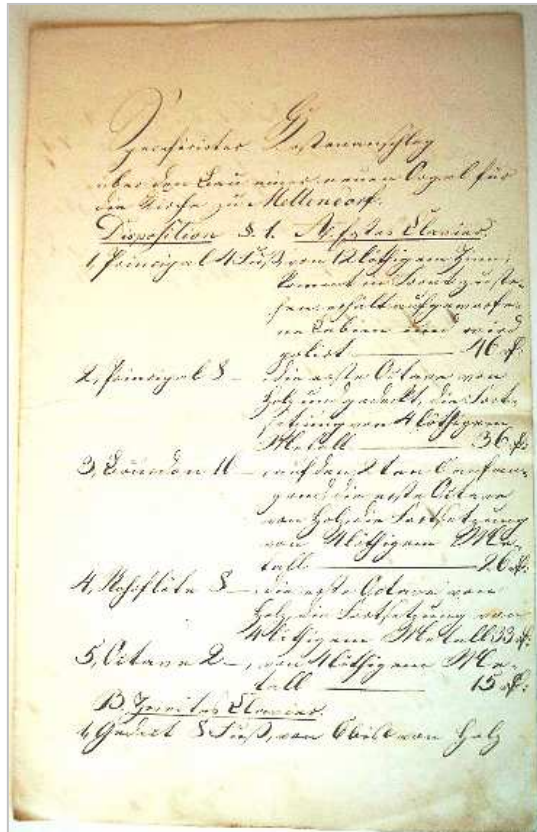 Specificirter Kostenanschlag
über den Bau einer neuen Orgel für
die Kirche zu Mellendorf.
Disposition §. 1. A. Erstes Clavier.
1, Principal 4 Fuß, von 12 löthigem Zinn,
kommt in Front zu ste-
hen, erhält aufgeworfe-
ne Labien und wird
polirt 46
2, Principal 8 – die erste Octave von
Holz und gedeckt, die Fort-
setzung von 4 löthigem
Metall 36
3, Bourdon 16 – auf den 2ten
die erste Octave
von Holz, die Fortsetzung
von 4 löthigem Me-
tall 26
4, Rohrflöte 8 – die erste Octave von
Holz, die Fortsetzung von
4 löthigem Metall 33
5, Octave 2 –, von 4 löthigem Me-
tall 15
B. Zweites Clavier.
1, Gedact 8 Fuß, von Holz